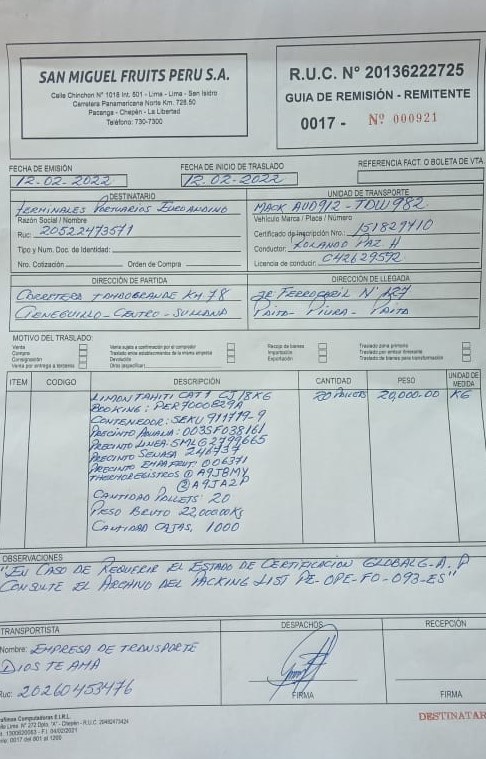 SAN MIGUEL FRUITS PERU S.A.
Calle Chinchon N° 1018 Int. 601 - Lima - Lima - San Isidro
Carretera Panamericana Norte Km. 728.50
Pacanga - Chepén - La Libertad
Teléfono: 730-7300
R.U.C. N° 20136222725
GUIA DE REMISIÓN - REMITENTE
0017 - Nº 000921
FECHA DE EMISIÓN
12-02-2022
FECHA DE INICIO DE TRASLADO
12-02-2022
REFERENCIA FACT. O BOLETA DE VTA.
DESTINATARIO
TERMINALES PORTUARIOS EUROANDINO
Razón Social / Nombre
Ruc: 20522473571
Tipo y Num. Doc. de Identidad:
Nro. Cotización Orden de Compra
UNIDAD DE TRANSPORTE
MACK AUD912 - TDW982
Vehículo Marca / Placa / Número
Certificado de Inscripción Nro.: 151829710
Conductor: ROLANDO PAZ H
Licencia de conducir: C42629572
DIRECCIÓN DE PARTIDA
CARRETERA TAMBOGRANDE KM 78
CIENEGUILLO - CENTRO - SULLANA
DIRECCIÓN DE LLEGADA
JR FERROCARIL N° 127
PAITA - PIURA - PAITA
MOTIVO DEL TRASLADO:
Venta
Compra
Consignación
Venta por entrega a terceros
Venta sujeta a confirmación por el comprador
Traslado entre establecimientos de la misma empresa
Devolución
Otros (especificar)
Recojo de bienes
Importación
Exportación
Traslado zona primaria
Traslado por emisor itinerante
Traslado de bienes para transformación
ITEM CÓDIGO DESCRIPCIÓN CANTIDAD PESO UNIDAD DE MEDIDA
LIMON TAHITI CAT 1 CJ 18KG 20 PALLETS 20,000.00 KG
BOOKING: PER7000829A
CONTENEDOR: SEKU 911719-9
PRECINTO ADUANA: 0035F038161
PRECINTO LINEA: SMLG2799665
PRECINTO SENASA 246737
PRECINTO EMPAFRUT: 006371
THERMOREGISTROS ① A9JBMY
② A9JA2P
CANTIDAD PALLETS: 20
PESO BRUTO 22,000.00 KG
CANTIDAD CAJAS, 1000
OBSERVACIONES
"EN CASO DE REQUERIR EL ESTADO DE CERTIFICACION GLOBALG.A.P
CONSULTE EL ARCHIVO DEL PACKING LIST PE-OPE-FO-093-ES"
TRANSPORTISTA
Nombre: EMPRESA DE TRANSPORTE
DIOS TE AMA
Ruc: 20260453476
DESPACHOS
FIRMA
RECEPCIÓN
FIRMA
DESTINATAR